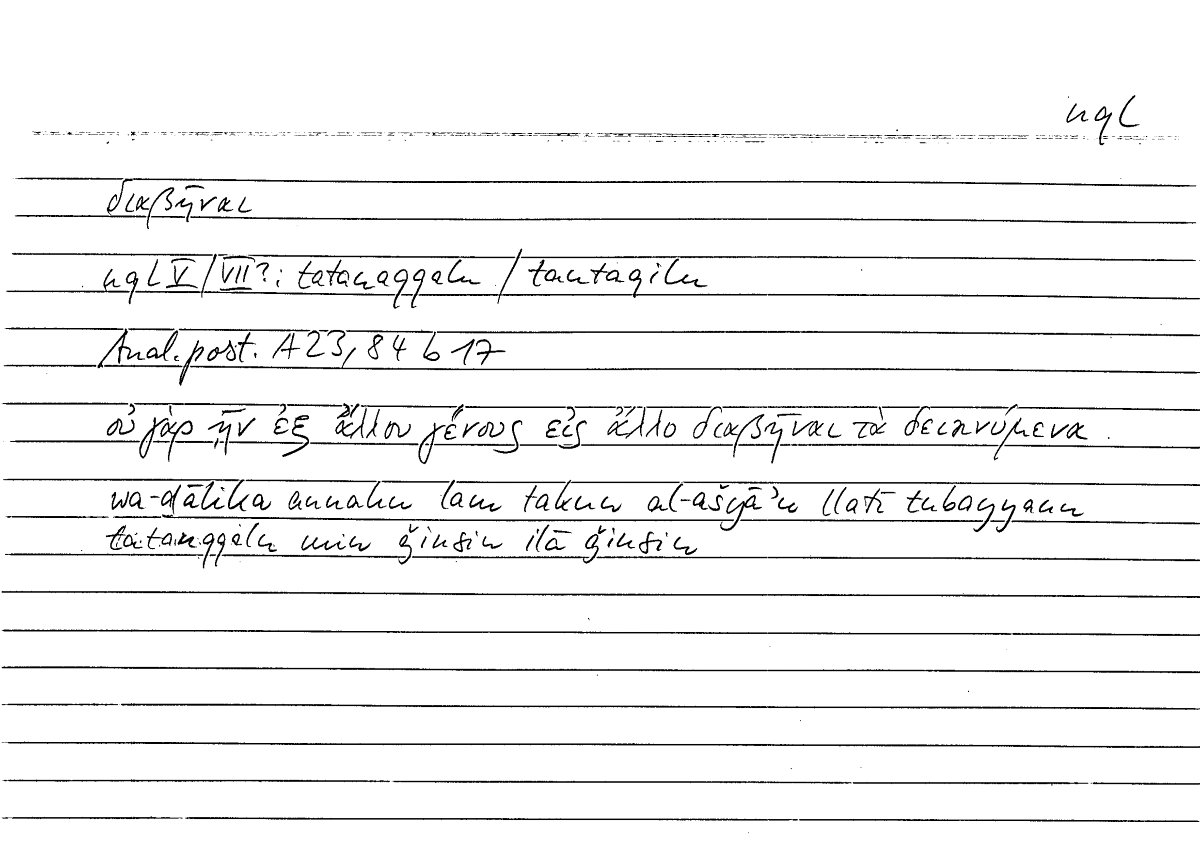 nql
διαβῆναι
nql V/VII?: tatanaqqalu / tantaqilu
Anal. post. A 23, 84 b 17
οὐ γὰρ ἦν ἐξ ἄλλου γένους εἰς ἄλλο διαβῆναι τὰ δεικνύμενα.
wa-ḏālika annahu lam takun al-ašyāʾu llatī tubayyanu
tatanqqalu min ǧinsin ilā ǧinsin